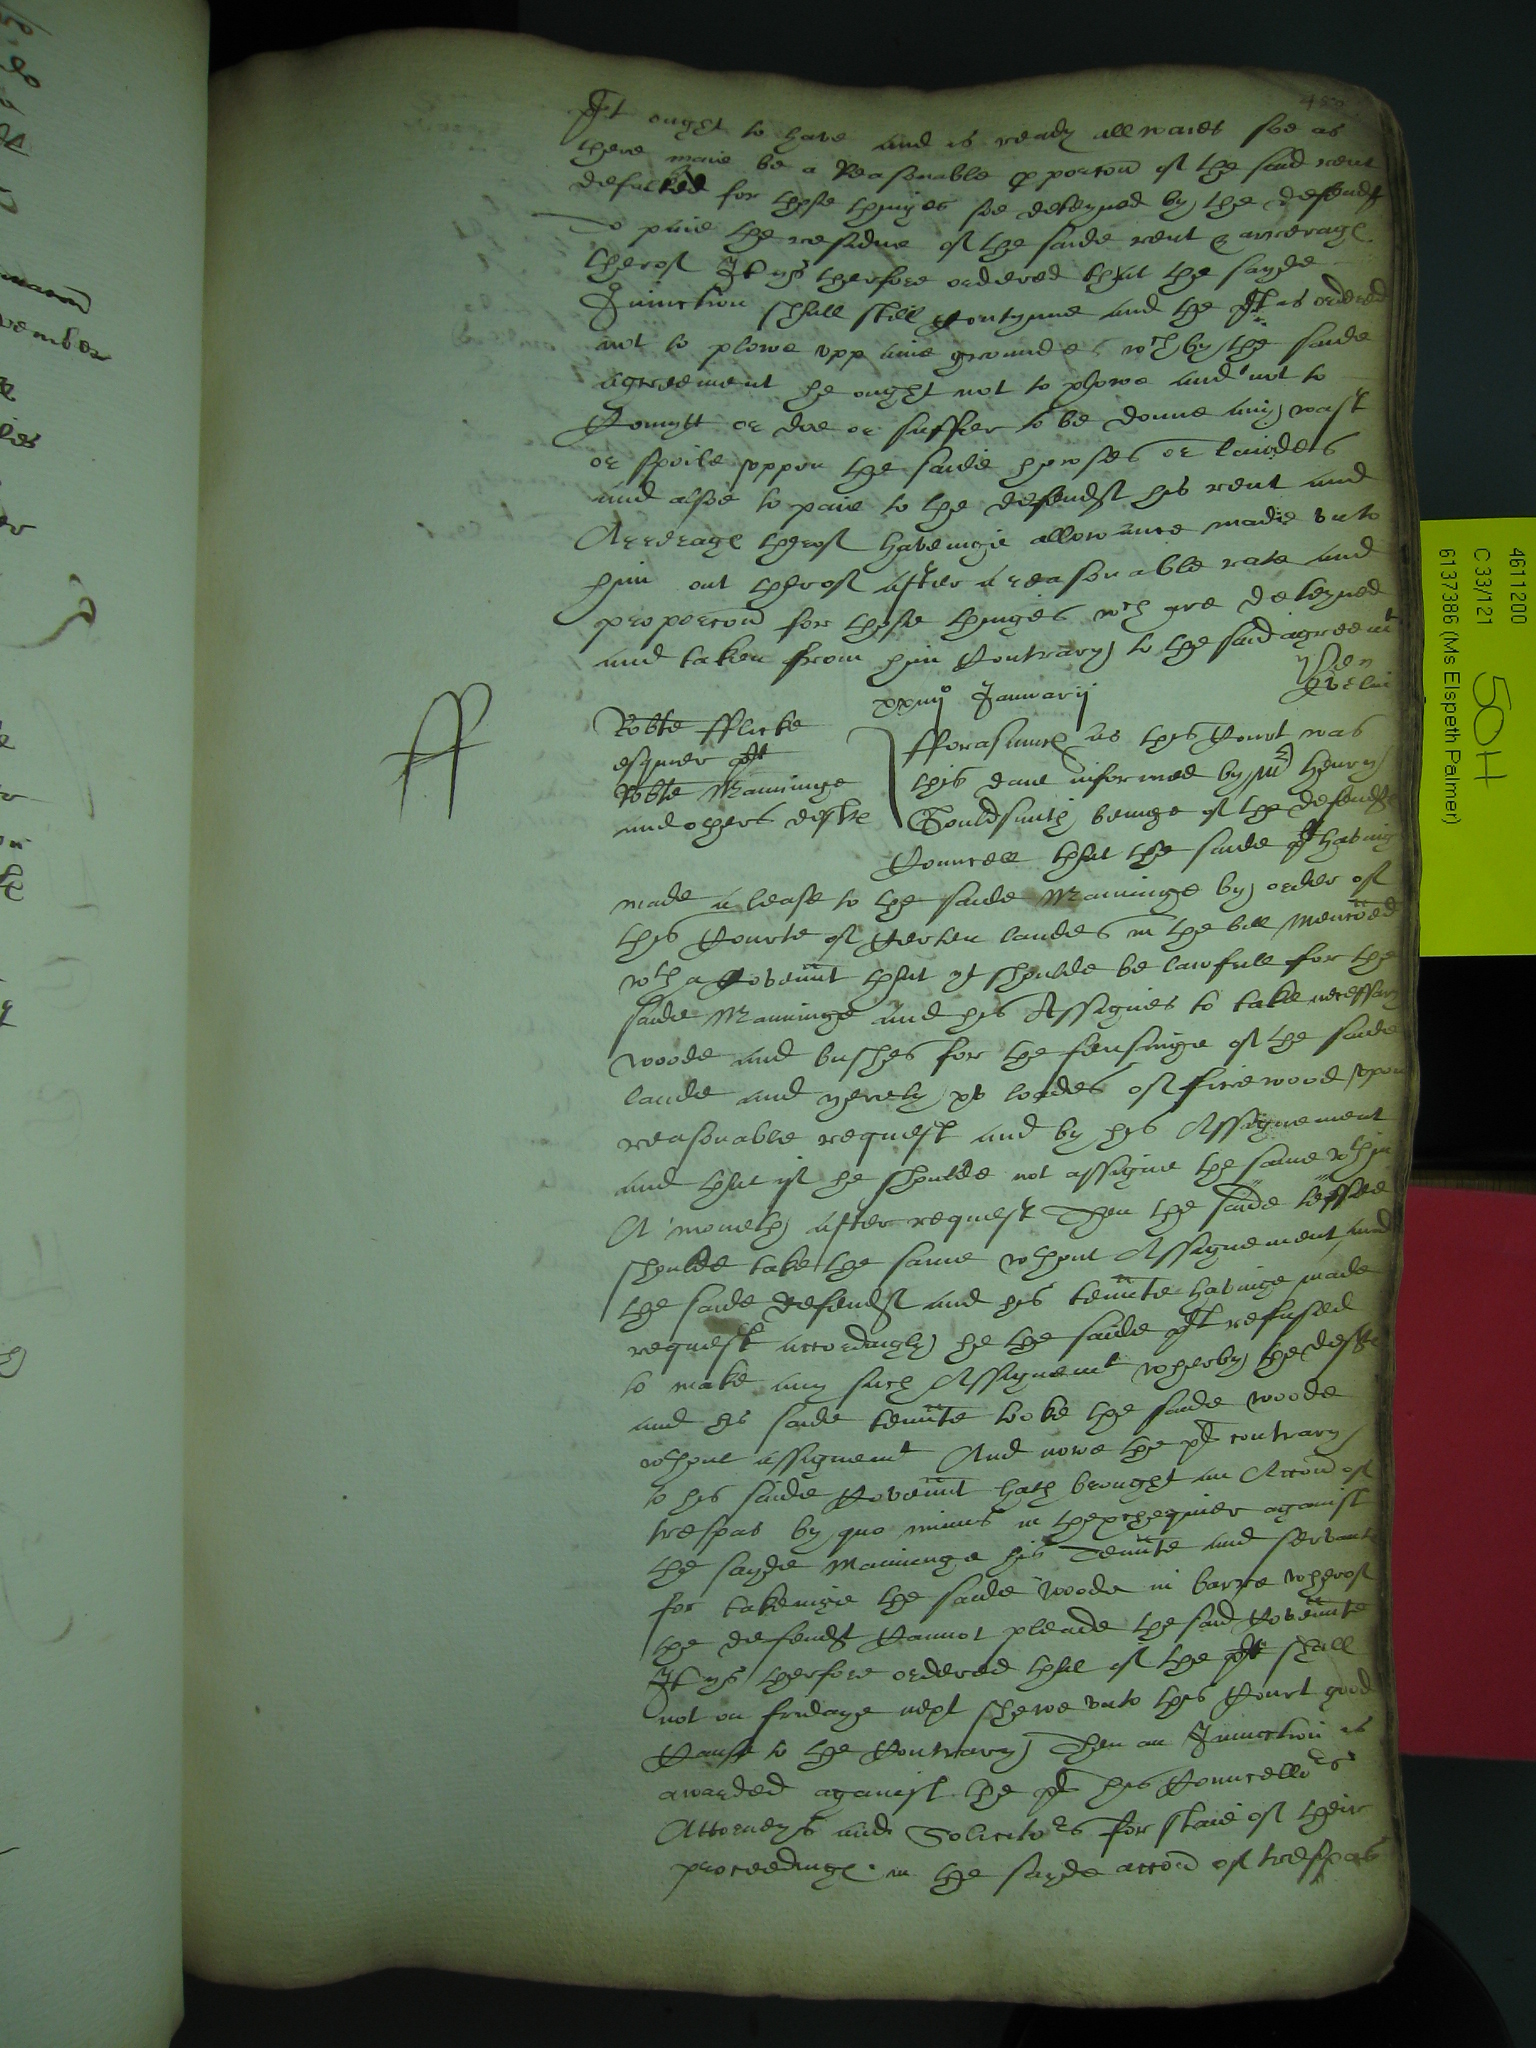 plt ought to have and is ready allwaies soe as
there maie be a Reasonable pporcon of the said rent
defaulked for those thinges soe deteyned by the defendt
To paie the residue of the saide rent & arrerages
therof It ys therfore ordered that the sayde
Iniunction shall still contynue and the plt is ordered
not to plowe vpp anie groundes wch by the saide
agreement he ought not to plowe and not to
Comytt or doe or suffer to be donne any wast
or spoile vppon the saide howses or landes
and alsoe to paie to the defendt his rent and
Arrerages therof haveinge allowance made vnto
him out therof after a reasonable rate and
proporcon for those thinges wch are deteyned
and taken from him Contrary to the said agreemt
xxiiijo Januarij
Robte fflicke
esquier plt
Robte Manninge
and others deftes
fforasmuch as this Court was
this daie informed by Mr Henry
Gouldsmith beinge of the defendtes
Councell that the saide plt having
made a lease to the saide Manninge by order of
this Courte of Certen landes in the bill mencoed
wth a Covennt that yt shoulde be lawfull for the
saide Manninge and his Assignes to take necessary
woode and bushes for the fensinge of the saide
lande and yerely xv loades of firewood vpon
reasonable request and by his Assignement
and that if he shoulde not assigne the same wthin
A moneth after request Then the saide lessee
shoulde take the same wthout Assignement And
the saide defendt and his tennte havinge made
request accordingly he the saide plt refused
to make any such Assignemt wherby the defte
and his saide tennte tooke the saide woode
wthout assignemt And nowe the plt contrary
to his saide Covennt hath brought an Accon of
trespas by quo minus in thexchequier against
the sayde Manninge his Tennte and servante
for takeinge the saide woode in barre wherof
the defendt Cannot pleade the said Covennte
It ys therfore ordered that if the plt shall
not on fridaye next shewe vnto this Court good
Cause to the Contrary Then an Iniunction is
awarded against the plt his Councellors
Attorneys and Solicitors for staie of their
proceedinges in the sayde accon of trespas
4611200
C 33/121
50H
6137386 (Ms Elspeth Palmer)